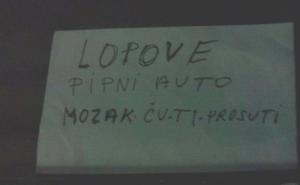 LOPOVE
PIPNI AUTO
MOZAK·ĆU·TI·PROSUTI